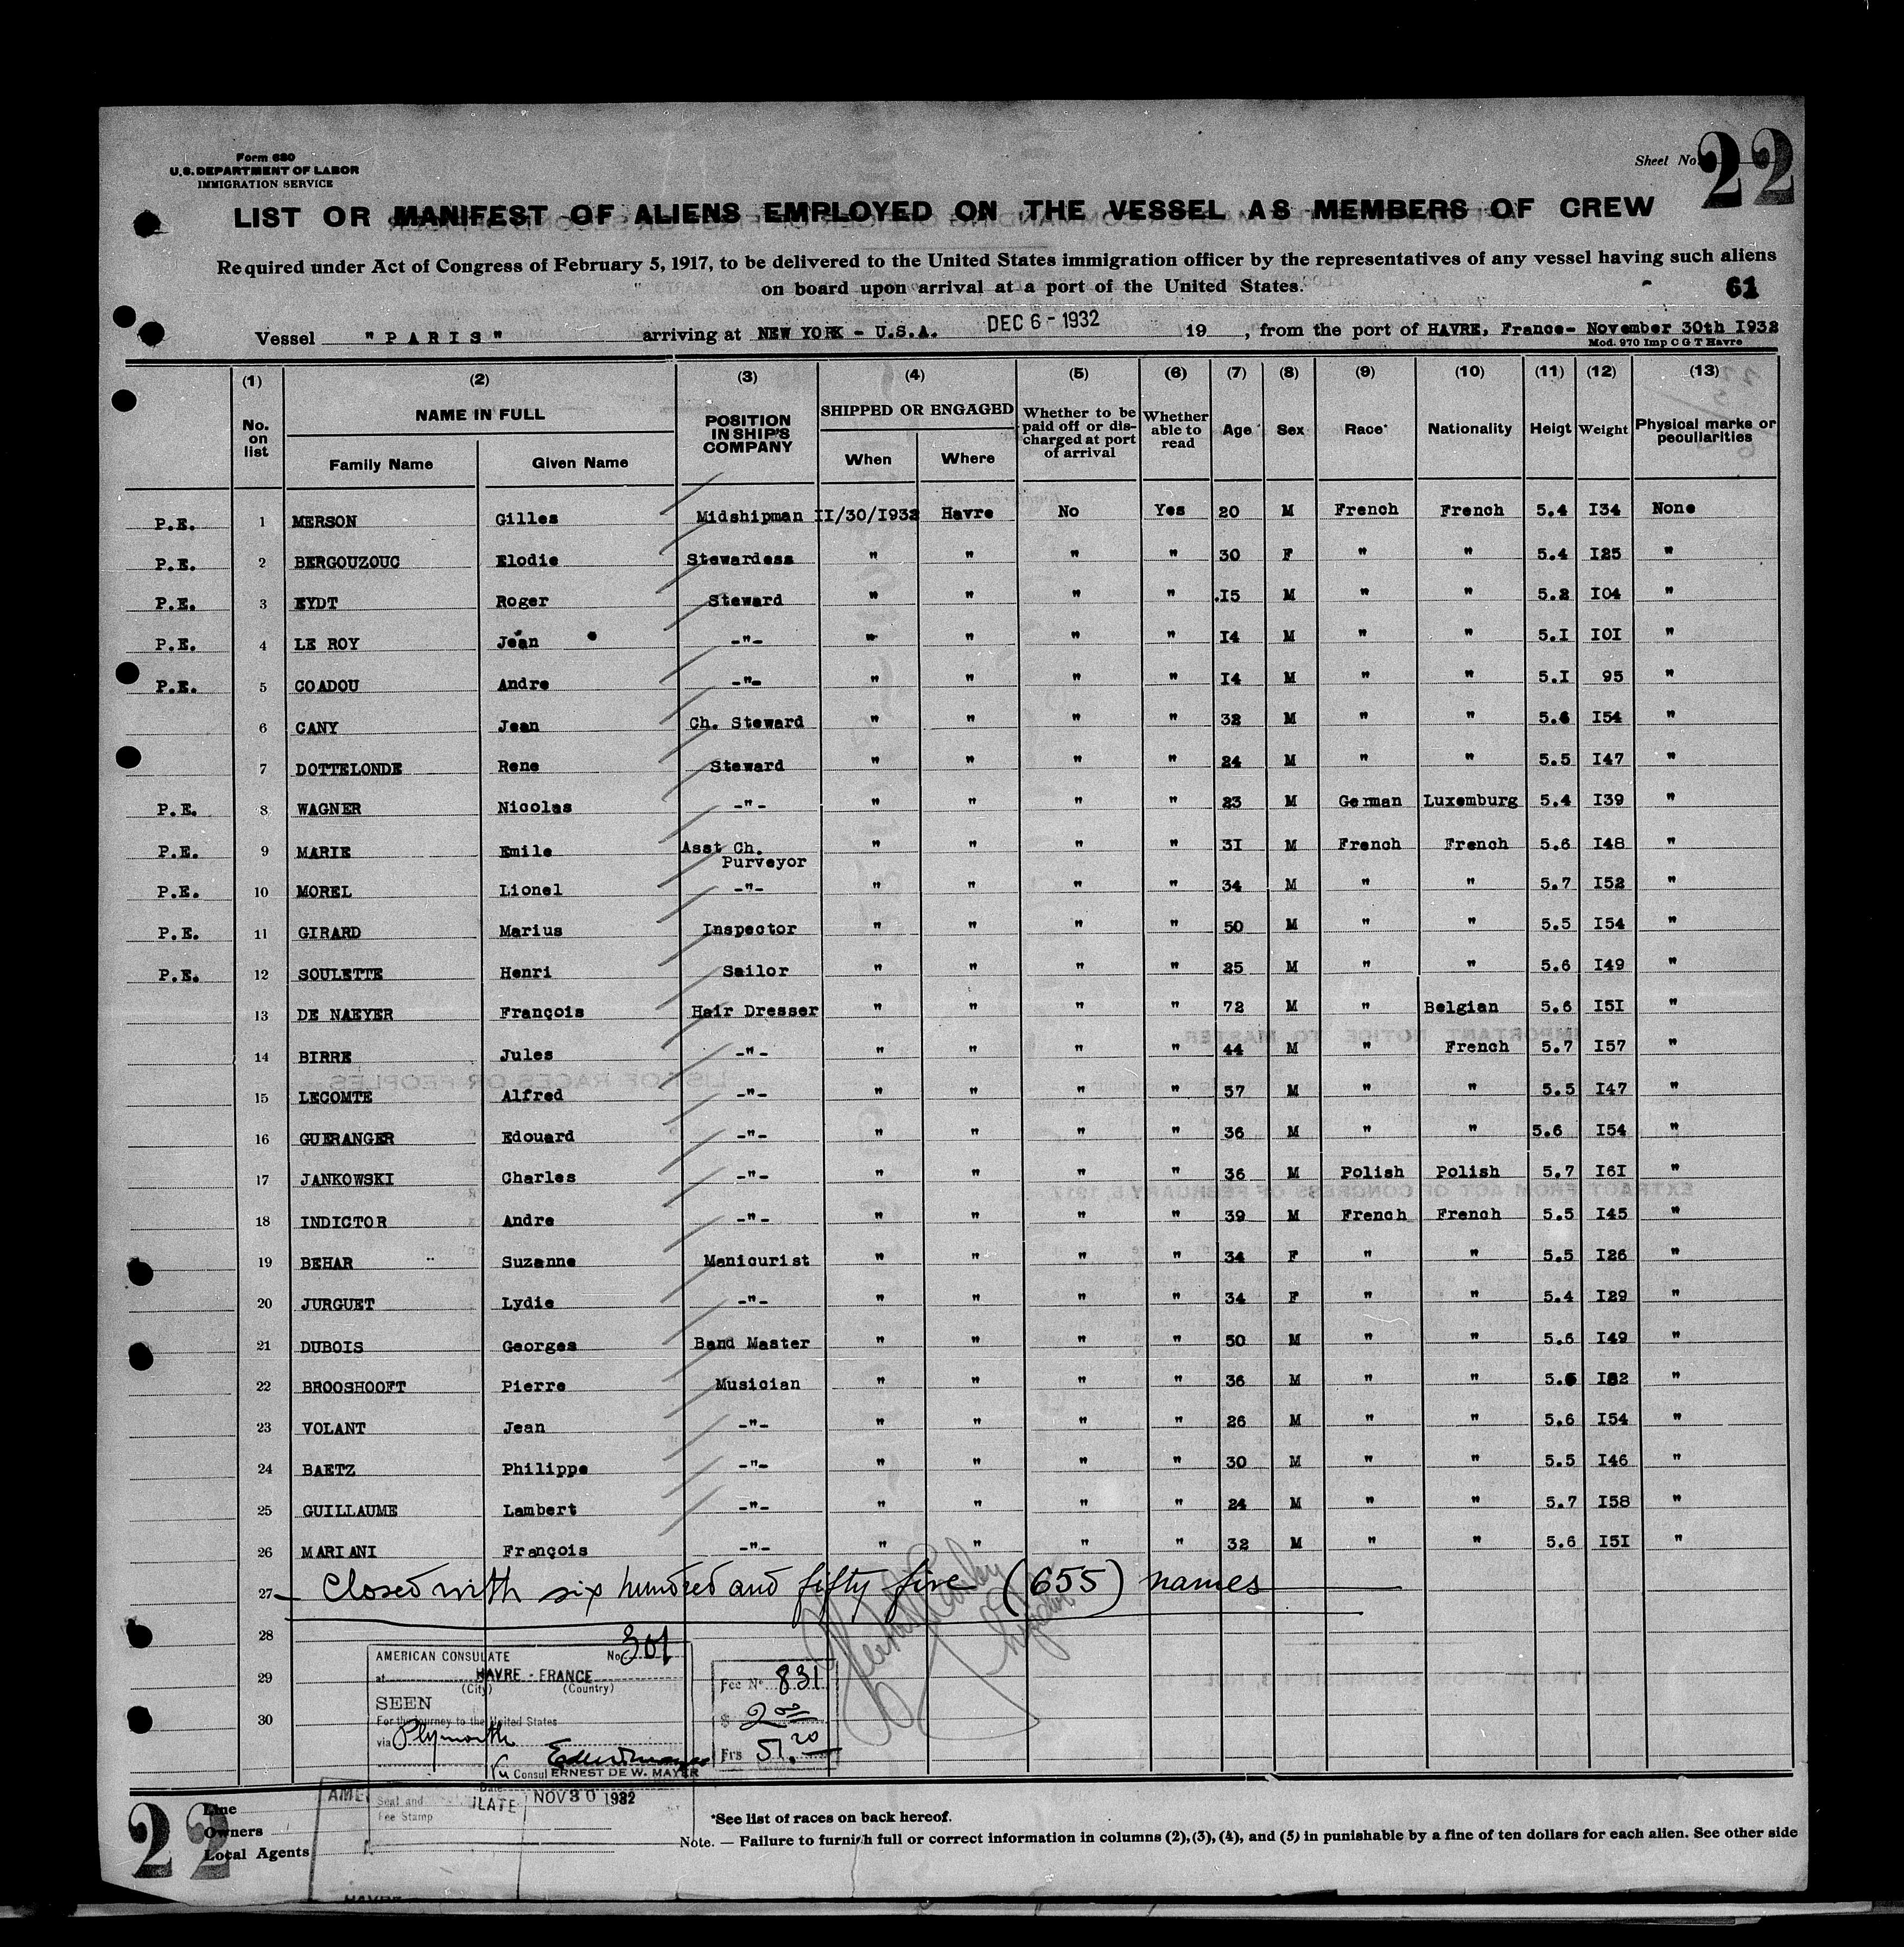 Form 680
U.S. DEPARTMENT OF LABOR
IMMIGRATION SERVICE
Sheet No. 22
LIST OR MANIFEST OF ALIENS EMPLOYED ON THE VESSEL AS MEMBERS OF CREW
Required under Act of Congress of February 5, 1917, to be delivered to the United States immigration officer by the representatives of any vessel having such aliens
on board upon arrival at a port of the United States.
61
Vessel "PARIS" arriving at NEW YORK - U.S.A. DEC 6 - 1932 19 , from the port of HAVRE, France- November 30th I932
Mod. 970 Imp C G T Havre
(1) (2) (3) (4) (5) (6) (7) (8) (9) (10) (11) (12) (13)
No. on list NAME IN FULL Family Name Given Name POSITION IN SHIP'S COMPANY SHIPPED OR ENGAGED When Where Whether to be paid off or discharged at port of arrival Whether able to read Age Sex Race* Nationality Heigt Weight Physical marks or peculiarities
P.E. 1 MERSON Gilles Midshipman II/30/I932 Havre No Yes 20 M French French 5.4 I34 None
P.E. 2 BERGOUZOUC Elodie Stewardess " " " " 30 F " " 5.4 I25 "
P.E. 3 EYDT Roger Steward " " " " .I5 M " " 5.2 I04 "
P.E. 4 LE ROY Jean -"- " " " " I4 M " " 5.I I0I "
P.E. 5 COADOU Andre -"- " " " " I4 M " " 5.I 95 "
6 CANY Jean Ch. Steward " " " " 32 M " " 5.6 I54 "
7 DOTTELONDE Rene Steward " " " " 24 M " " 5.5 I47 "
P.E. 8 WAGNER Nicolas -"- " " " " 23 M German Luxemburg 5.4 I39 "
P.E. 9 MARIE Emile Asst Ch. Purveyor " " " " 3I M French French 5.6 I48 "
P.E. 10 MOREL Lionel -"- " " " " 34 M " " 5.7 I52 "
P.E. 11 GIRARD Marius Inspector " " " " 50 M " " 5.5 I54 "
P.E. 12 SOULETTE Henri Sailor " " " " 25 M " " 5.6 I49 "
13 DE NAEYER François Hair Dresser " " " " 72 M " Belgian 5.6 I5I "
14 BIRRE Jules -"- " " " " 44 M " French 5.7 I57 "
15 LECOMTE Alfred -"- " " " " 57 M " " 5.5 I47 "
16 GUERANGER Edouard -"- " " " " 36 M " " 5.6 I54 "
17 JANKOWSKI Charles -"- " " " " 36 M Polish Polish 5.7 I6I "
18 INDICTOR Andre -"- " " " " 39 M French French 5.5 I45 "
19 BEHAR Suzanne Manicurist " " " " 34 F " " 5.5 I26 "
20 JURGUET Lydie -"- " " " " 34 F " " 5.4 I29 "
21 DUBOIS Georges Band Master " " " " 50 M " " 5.6 I49 "
22 BROOSHOOFT Pierre Musician " " " " 36 M " " 5.6 I82 "
23 VOLANT Jean -"- " " " " 26 M " " 5.6 I54 "
24 BAETZ Philippe -"- " " " " 30 M " " 5.5 I46 "
25 GUILLAUME Lambert -"- " " " " 24 M " " 5.7 I58 "
26 MARIANI François -"- " " " " 32 M " " 5.6 I5I "
27 Closed with six hundred and fifty five (655) names
28
29
30
AMERICAN CONSULATE No. 301
at HAVRE - FRANCE
(City) (Country)
SEEN
For the journey to the United States
via Plymouth
Consul ERNEST DE W. MAYER
Date NOV 30 1932
Seal and
Fee Stamp
Fee No. 831
$ 2.00
Frs 51.20
22
Line
Owners
Local Agents
*See list of races on back hereof.
Note. — Failure to furnish full or correct information in columns (2), (3), (4), and (5) in punishable by a fine of ten dollars for each alien. See other side